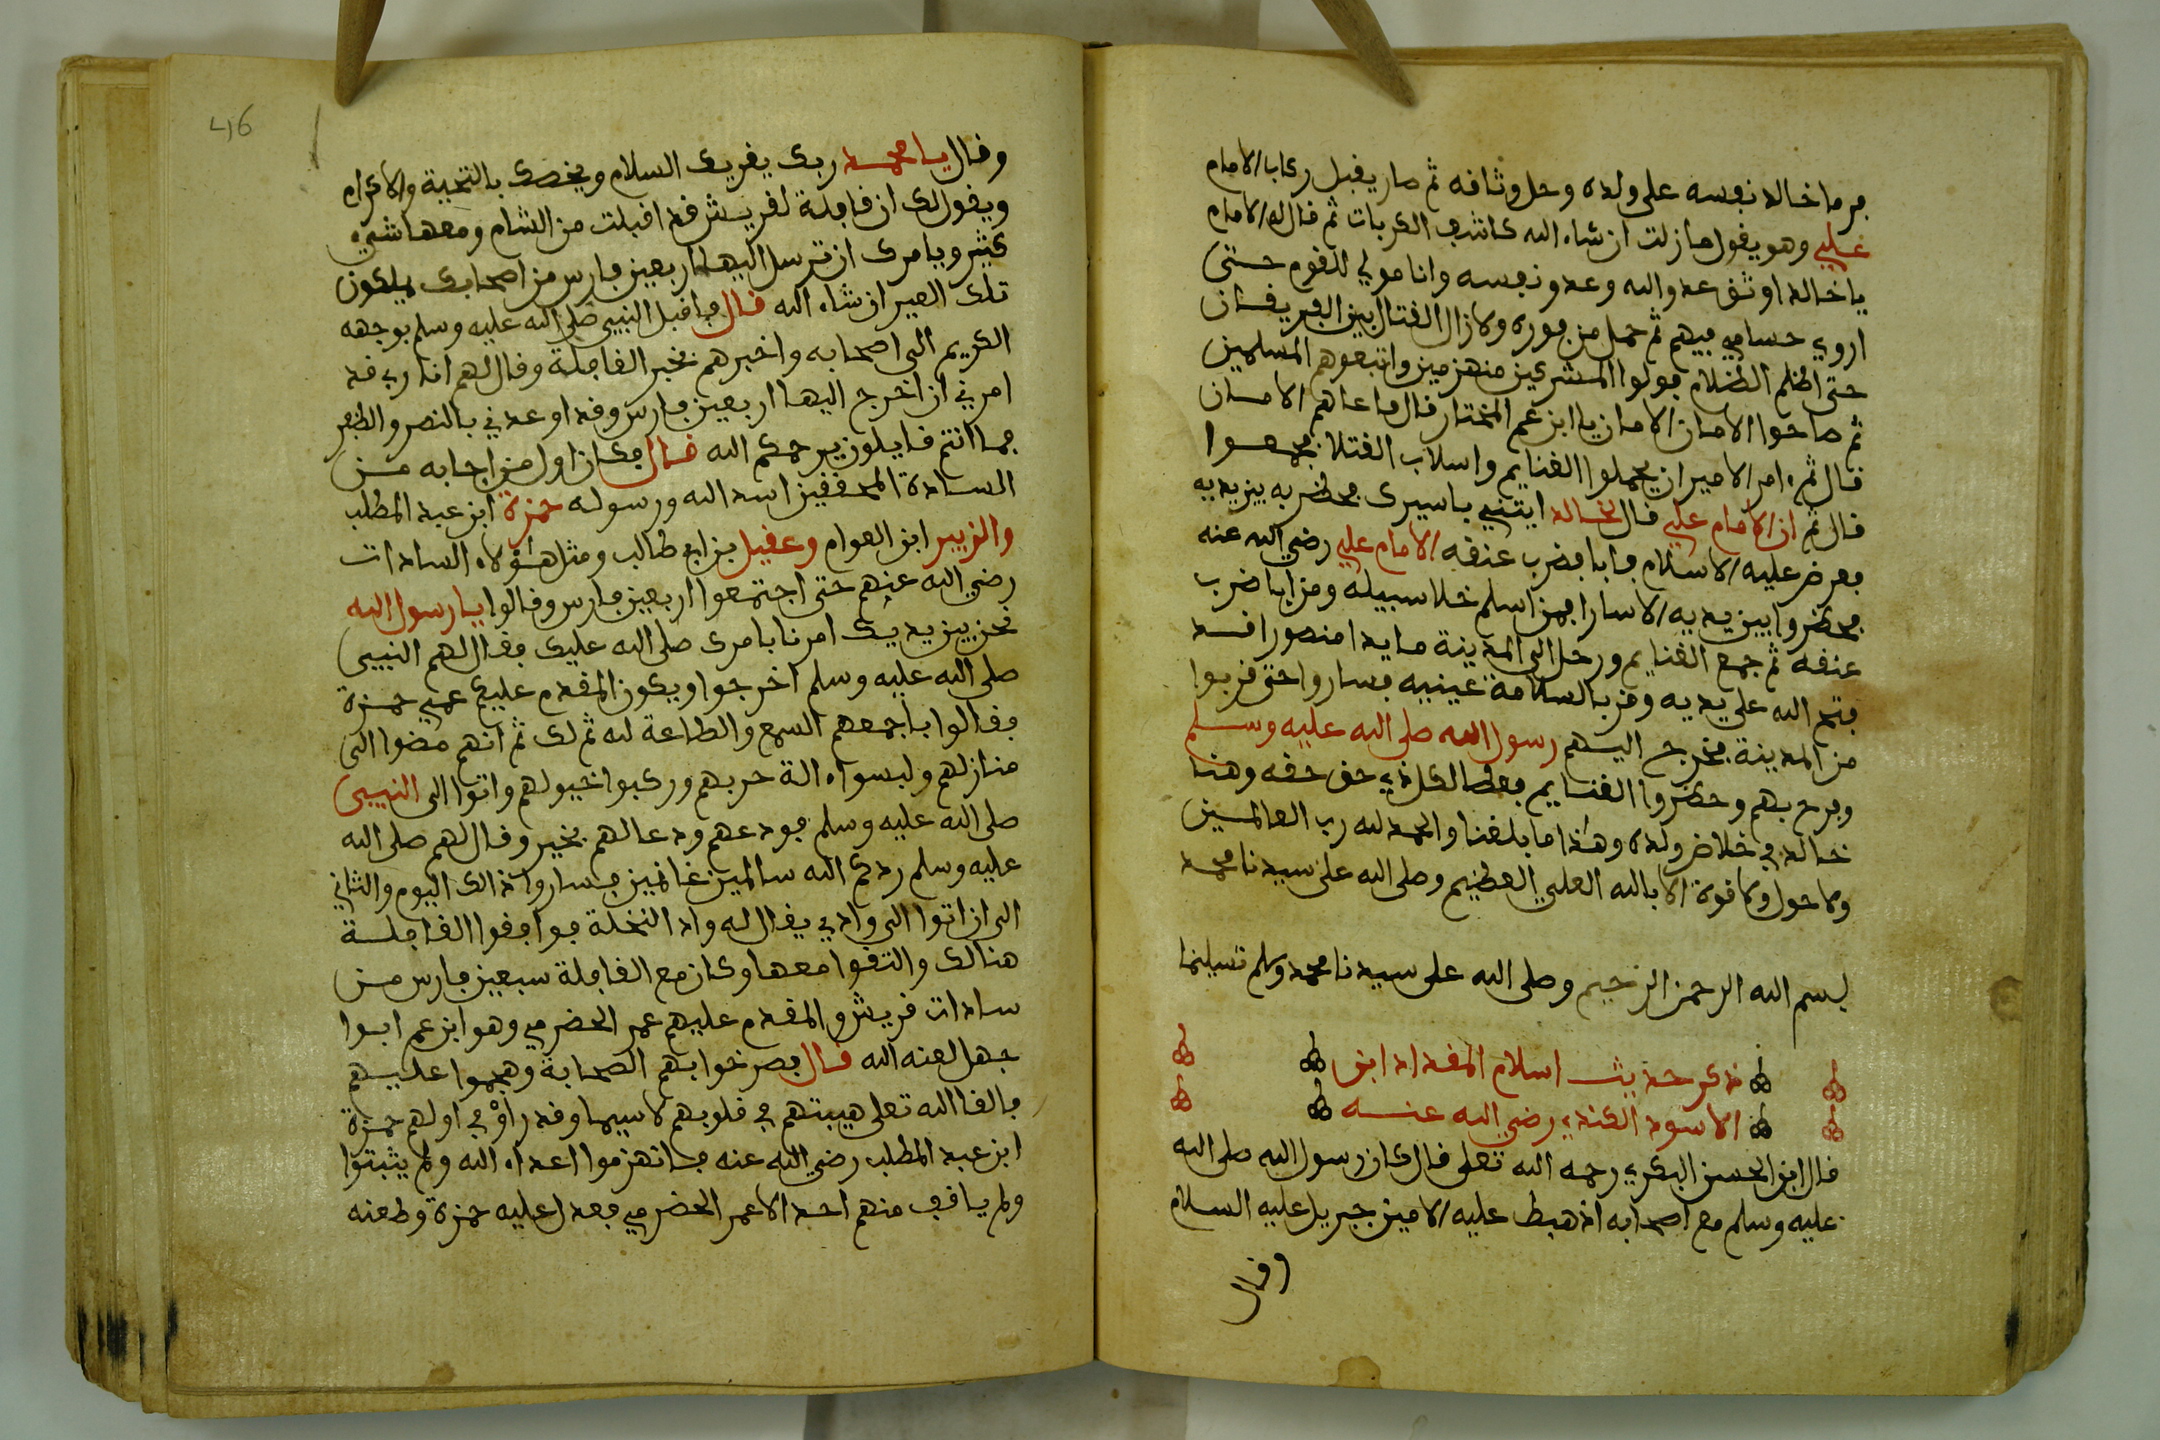 فرما خالد نفسه على ولده وحل وثاقه ثم صار يقبل ركاب الامام
علي وهو يقول ما زلت ان شاء الله كاشف الكربات ثم قال له الامام
يا خالد اوثق عدو الله وعدو نفسه وانا مولي للقوم حتى
اروي حسامي فيهم ثم حمل من فوره ولا زال القتال بين الفريقان
حتى اظلم الظلام فولوا المشركين منهزمين واتبعوهم المسلمين
ثم صاحوا الامان الامان يا ابن عم المختار قال فاعطاهم الامان
قال ثم امر الامير ان يحملوا الغنايم واسلاب القتلا فجمعوا
قال ثم ان الامام علي قال لخالد ايتني باسيرك فحضر به بين يديه
فعرض عليه الاسلام فابا فضرب عنقه الامام علي رضي الله عنه
فحضروا بين يديه الاسارا فمن اسلم خلا سبيله ومن ابا ضرب
عنقه ثم جمع الغنايم ورحل الى المدينة مايدا منصورا قد
فتح الله على يديه وقر بالسلامة عينيه فساروا حتى قربوا
من المدينة فخرج اليهم رسول الله صلى الله عليه وسلم
وفرح بهم وحضروا الغنايم فعطا لكل ذي حق حقه وهنا
خالد في خلاص ولده وهذا ما بلغنا والحمد لله رب العالمين
ولا حول ولا قوة الا بالله العلي العظيم وصلى الله على سيدنا محمد
بسم الله الرحمن الرحيم وصلى الله على سيدنا محمد وسلم تسليما
ذكر حديث اسلام المقداد ابن
الاسود الكندي رضي الله عنه
قال ابن الحسن البكري رحمه الله تعلى قال كان رسول الله صلى الله
عليه وسلم مع اصحابه اذ هبط عليه الامين جبريل عليه السلام
وقال
46
وقال يا محمد ربك يقريك السلام ويخصك بالتحية والاكرام
ويقول لك ان قافلة لقريش قد اقبلت من الشام ومعها شيء
كثير ويامرك ان ترسل اليها اربعين فارس من اصحابك يملكون
تلك العير ان شاء الله قال فاقبل النبي صلى الله عليه وسلم بوجهه
الكريم الى اصحابه واخبرهم بخبر القافلة وقال لهم ان ربي قد
امرني ان اخرج اليها اربعين فارس وقد اوعدني بالنصر والظفر
فما انتم قايلون يرحمكم الله قال فكان اول من اجابه من
السادة المحققين اسد الله ورسوله حمزة ابن عبد المطلب
والزبير ابن العوام وعقيل بن ابي طالب ومثل هؤلاء السادات
رضي الله عنهم حتى اجتمعوا اربعين فارس وقالوا يا رسول الله
نحن بين يديك امرنا بامرك صلى الله عليك فقال لهم النبي
صلى الله عليه وسلم اخرجوا ويكون المقدم عليكم عمي حمزة
فقالوا باجمعهم السمع والطاعة لله ثم لك ثم انهم مضوا الى
منازلهم ولبسوا ءالة حربهم وركبوا خيولهم واتوا الى النبي
صلى الله عليه وسلم فودعهم ودعا لهم بخير وقال لهم صلى الله
عليه وسلم ردكم الله سالمين غانمين فساروا ذالك اليوم والثاني
الى ان اتوا الى وادي يقال له واد النخلة فوافقوا القافلة
هنالك والتقوا معها وكان مع القافلة سبعين فارس من
سادات قريش والمقدم عليهم عمر الحضرمي وهو ابن عم ابوا
جهل لعنه الله قال فصرخوا بهم الصحابة وهجموا عليهم
فالقا الله تعلى هيبتهم في قلوبهم لا سيما وقد راوْ في اولهم حمزة
ابن عبد المطلب رضي الله عنه فانهزموا اعداء الله ولم يثبتوا
ولم يا منهم احد الا عمر الحضرمي فعدل عليه حمزة وطعنه